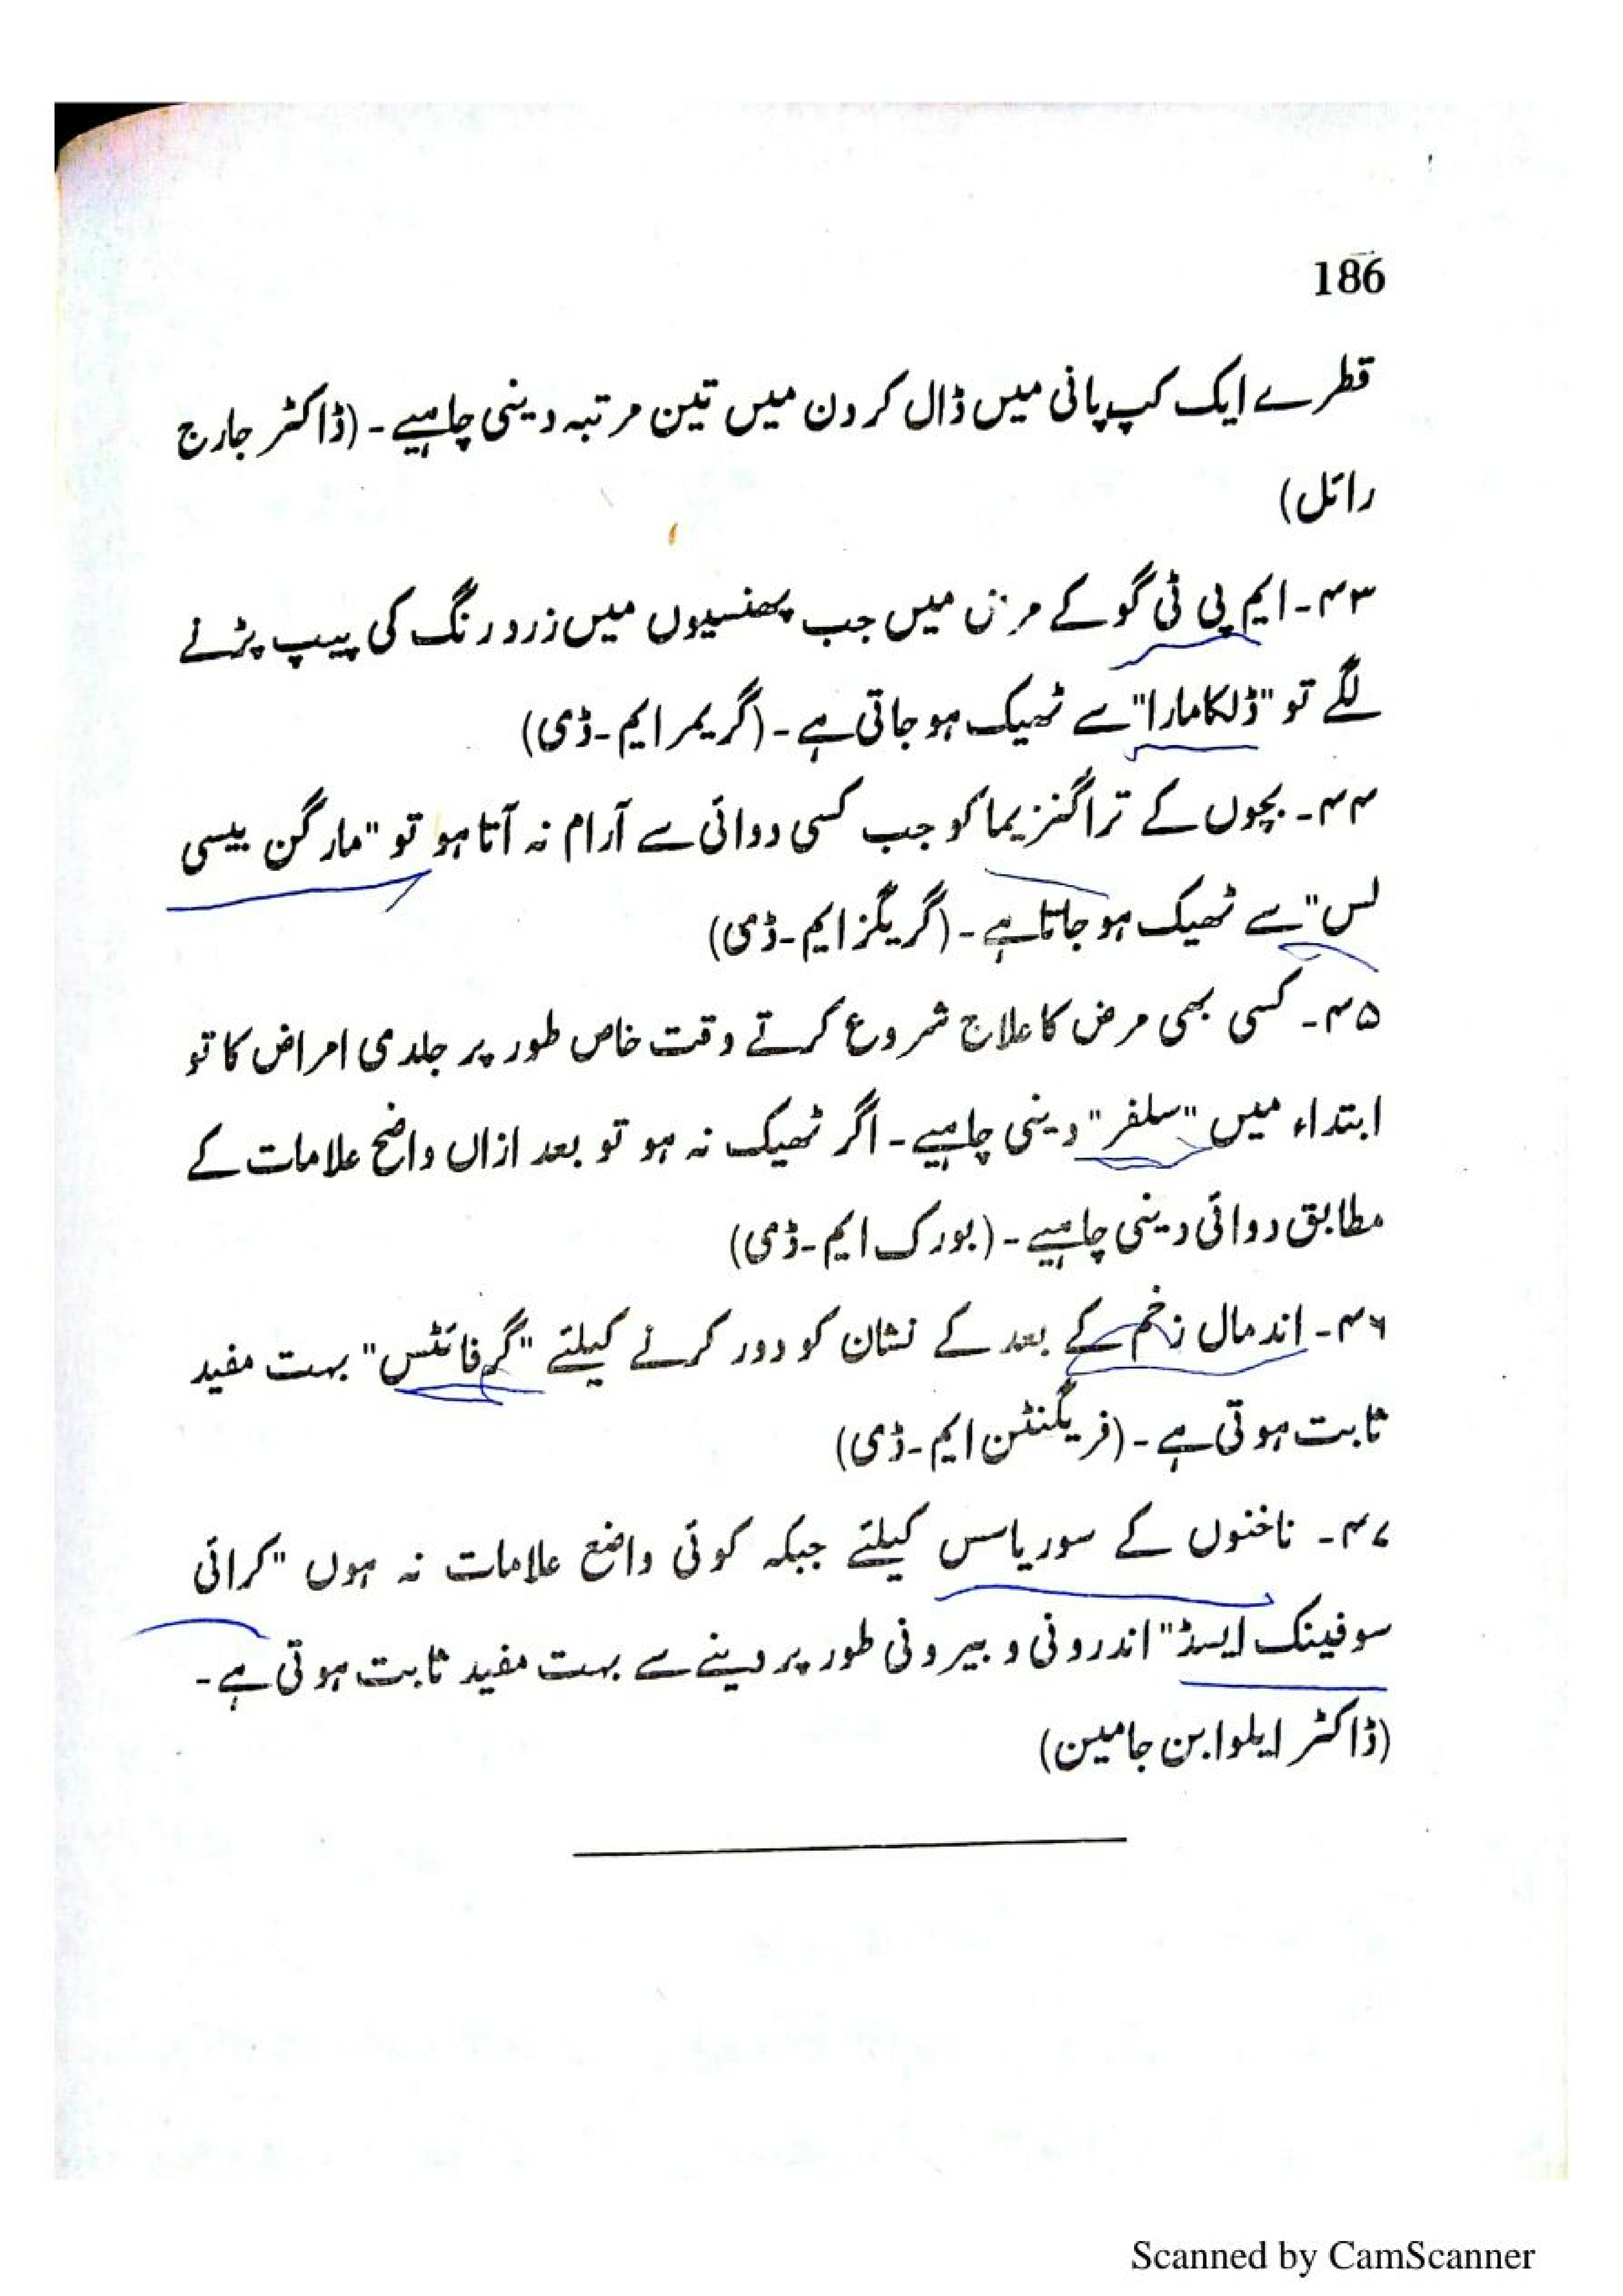 186
قطرے ایک کپ پانی میں ڈال کر دن میں تین مرتبہ دینی چاہیے۔ (ڈاکٹر جارج
رائل)
۴۳۔ ایم پی ٹی گو کے مرض میں جب پھنسیوں میں زرد رنگ کی پیپ پڑنے
لگے تو "ڈلکامارا" سے ٹھیک ہو جاتی ہے۔ (گریمر ایم۔ڈی)
۴۴۔ بچوں کے تر اگنزیما کو جب کسی دوائی سے آرام نہ آتا ہو تو "مارگن بیسی
لس" سے ٹھیک ہو جاتا ہے۔ (گریگز ایم۔ڈی)
۴۵۔ کسی بھی مرض کا علاج شروع کرتے وقت خاص طور پر جلدی امراض کا تو
ابتداء میں "سلفر" دینی چاہیے۔ اگر ٹھیک نہ ہو تو بعد ازاں واضح علامات کے
مطابق دوائی دینی چاہیے۔ (بورک ایم۔ڈی)
۴۶۔ اندمال زخم کے بعد کے نشان کو دور کرنے کیلئے "گرفائٹس" بہت مفید
ثابت ہوتی ہے۔ (فریگنٹن ایم۔ڈی)
۴۷۔ ناخنوں کے سوریاسس کیلئے جبکہ کوئی واضع علامات نہ ہوں "کرائی
سوفینک ایسڈ" اندرونی و بیرونی طور پر دینے سے بہت مفید ثابت ہوتی ہے۔
(ڈاکٹر ایلوا بن جامین)
Scanned by CamScanner